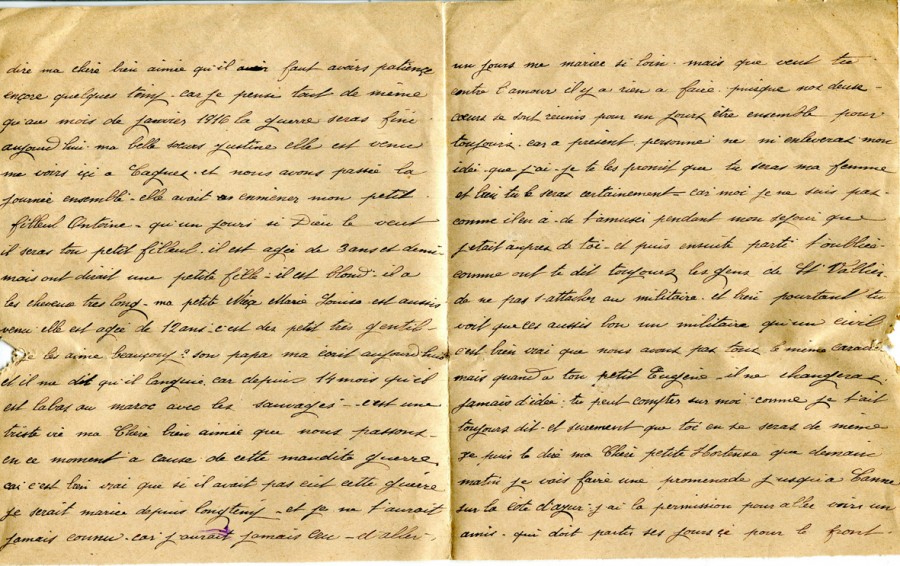 dire ma chère bien aimée qu'il faut avoirs patience
encore quelques temp. car je pense tout de meme
qu'au mois de janvier 1916 la guerre seras fini
aujourd'hui ma belle sœurs Justine elle est venue
me voirs içi a Cagnes. et nous avons passée la
journée ensemble. elle avait enmener mon petit
filleul Antoine - qu'un jours si Dieu le veut
il seras ton petit filleul. il est agée de 3 ans et demi
mais ont dirait une petite fille - il est blond. il a
les cheveux très long - ma petite Nièce Marie Louise est aussi
venu elle est agée de 12 ans. c'est des petit très gentil.
je les aime beaucoup? son papa ma ecrit aujourd'hui
et il me dit qu'il languie. car depuis 14 mois qu'il
est labas au maroc avec les sauvages - c'est une
triste vie ma Chère bien aimée que nous passons -
en ce moment a cause de cette maudite guerre
car c'est bien vrai que si il avait pas eut cette guerre
je serait mariée depuis longtemp - et je ne t'aurait
jamais connu. car j'aurait jamais eu - d'aller,
un jours me mariée si loin. mais que veut tu
contre l'amour il y a rien a faire. puisque nos deuse
cœurs se sont reunis pour un jours être ensemble pour
toujours. car a présent personne ne ni enleveras mon
idée. que j'ai. je te les promit que tu seras ma femme
et bien tu le seras certainement = car moi je ne suis pas
comme il en a - de t'amusé pendant mon sejour que
j'etait aupres de toi - et puis ensuite parti t'oublié
comme ont te dit toujours les gens de St Vallier.
de ne pas s'attacher au militaire. et bien pourtant tu
voit que ces aussis bon un militaire qu'un civil
c'est bien vrai que nous avons pas tous le même
mais quand a ton petit Eugène - il ne changeras
jamais d'idée. tu peut compter sur moi. comme je t'ait
toujours dit. et surement que toi en se seras de meme
je puis te dire ma Chère petite Hortense que demain
matin je vais faire une promenade jusqu'a Canne
sur la côte d'azur. j'ai la permission pour allée voirs un
amis. qui doit partir ses jours çi pour le front.